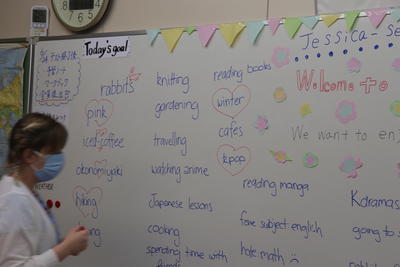 Today's goal
Jessica-se
Welcome to
We want to enj
WEATHER
rabbits
pink
iced-coffee
okonomiyaki
hiking
knitting
gardening
travelling
watching anime
Japanese lessons
cooking
spending time with
friends
reading books
winter
cafes
kpop
reading manga
fave subject english
hate math
Kdramas
going to s